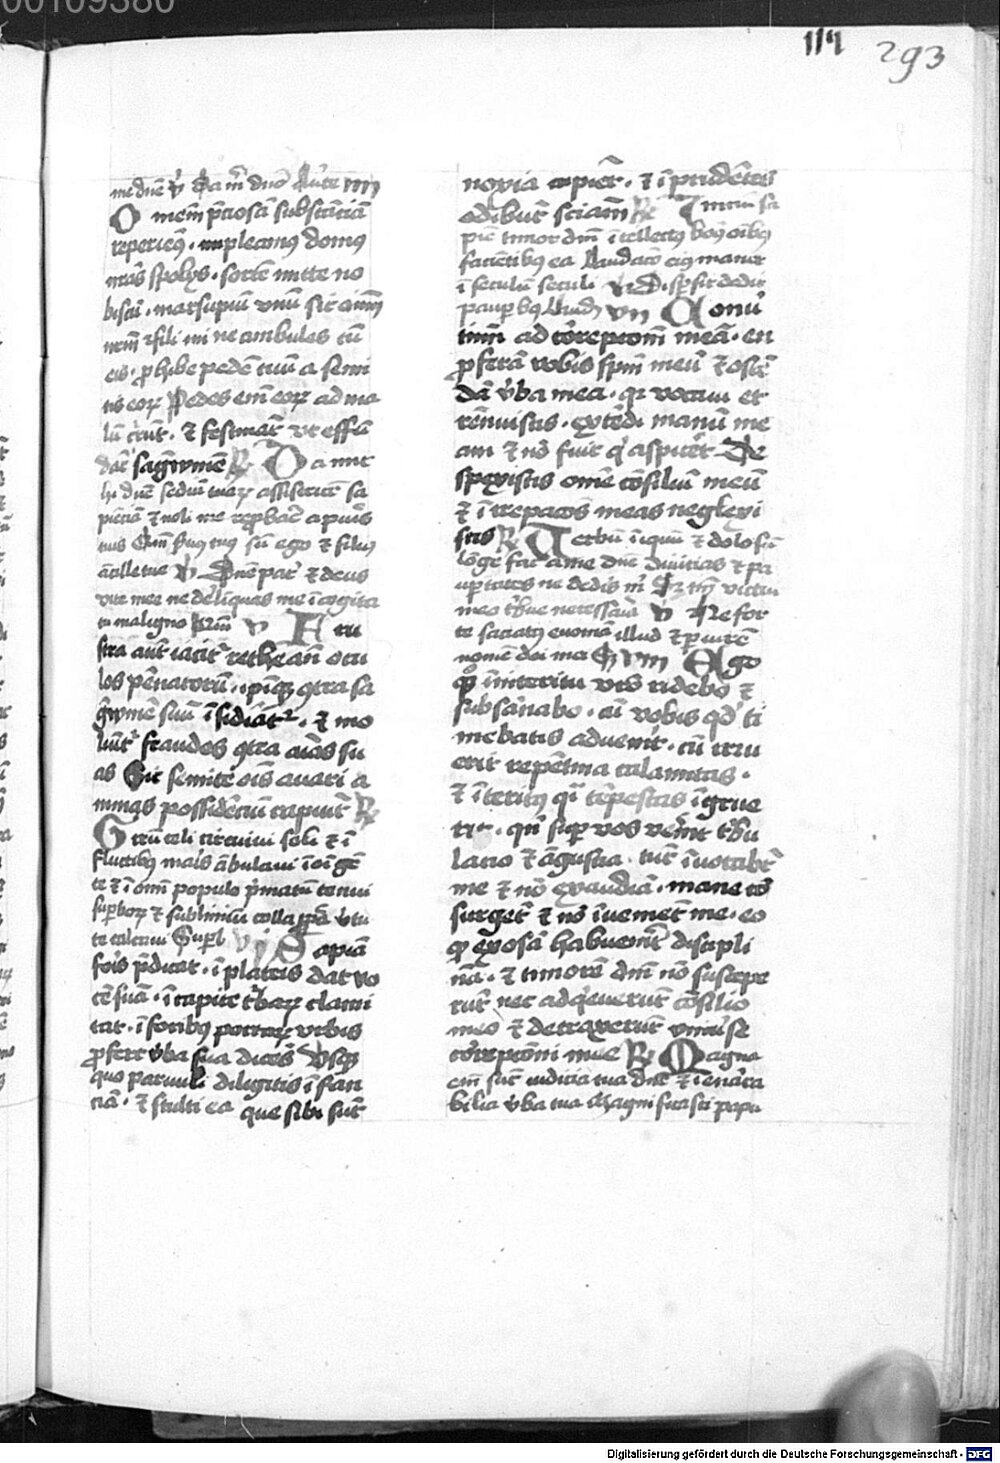 00109380
114 293
me dne V Da m dno Aute III
Omem p̄ciosā substāciā
reperieꝯ · implecimꝯ domus
nr̄as spolys · sortē mitte no
biscū · marsupiū vnū sit oīm
nrm̄ fili mi ne ambules cū
eis · ꝓhibe pedē tuū a semi
tis eoꝝ Pedes em̄ eoꝝ ad ma
lū cr̄unt · ⁊ festināt vt effū
dāt sāgwinem R Da mic
hi dn̄e sediū tuaꝝ assistricē sa
piēciā ⁊ noli me rep̄bare a pueris
tuis Qm̄ fuꝯ tuꝯ sū ego ⁊ filiꝯ
ācille tue V Dn̄e pat̄ ⁊ deus
vite mee ne dēliquas me ī cogita
tu maligno Qm̄ V Fru
stra aut̄ iacit̄ rethe an̄ ocu
los pēnatorū · ipīqꝫ ꝯtra sa
gwinē suū īsidiāt̄ · ⁊ mo
liūt̄ fraudes ꝯtra aīas su
as Sic semite oīs auari a
nimas possidēciū rapiūt R
Girū celi circuiui sola ⁊ ī
fluctibꝯ mais ābulaui ī oī gē
te ⁊ ī omī populo p̄matū tenui
suꝑboꝝ ⁊ sublimiū colla ꝓpā v̄tu
te calcaui Suꝑb V Sapiā
foris p̄dicat · ī plateis dat vo
cē suā · ī capite t̄baꝝ clami
tat · ī foribꝯ portaꝝ vrbis
ꝓfert v̄ba sua dicēs Vsqꝫ
quo paruuli diligitis īfan
ciā · ⁊ stulti ea que sibi sūt
noxia cupiēt · ⁊ īprudētes
odibūt sciām R Iniciū sa
piē timor dn̄i ītellectꝯ bonꝯ oībꝯ
faciētibꝯ ea Laudacō eiꝯ manet
ī seculū seculi V Disꝑsit dedit
pauꝑibꝯ Laud VII Conū̓
timī ad cōrepcionē meā · en
ꝓferā vobis spm̄ meū ⁊ ostē
dā v̄ba mea · qꝛ vocaui et
rēnuistis · extēdi manū me
am ⁊ nō fuit q̄ aspicēt De
spexistis omē cōsiliū meū
⁊ īcrepacōes meas neglexi
stis R Verbū iniquū ⁊ dolosū
lōge fac a me dn̄e Diuitias ⁊ pa
uꝑtates ne dedis m̄ Sꝫ tm̄ victui
meo t̄bue necessaria V Ne for
te saciatꝯ euomā illud ⁊ ꝑiurē
nomē dei mei VIII Ego
qꝫ ī īteritu vr̄o ridebo ⁊
subsānabo · cū vobis qd̄ ti
mebatis adueniт̄ · cū irru
erit repētina calamitas ·
⁊ īteritꝯ qī tēpestas īgrue
rit · qn̄ suꝑ vos vēnit t̄bu
lacio ⁊ āgustia · tūc īuocabūt
me ⁊ nō exaudiā · mane cō
surgēt ⁊ nō īuenient me · eo
qꝫ exosā habueriт̄ discipli
nā · ⁊ timorē dn̄i nō suscepe
rūt nec adq̄euerūt cōsilio
meo ⁊ detraxerūt vniu̓se
cōrepcioni mee R Magna
em̄ sūt iudicia tua dn̄e ⁊ īenarra
bilia v̄ba tua Magnificasti popu
Digitalisierung gefördert durch die Deutsche Forschungsgemeinschaft - DFG